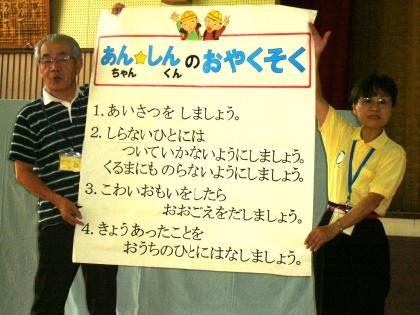 あん☆しん の おやくそく
ちゃん くん
1. あいさつを しましょう。
2. しらないひとには
ついていかないようにしましょう。
くるまにも のらないようにしましょう。
3. こわいおもいをしたら
おおごえをだしましょう。
4. きょうあったことを
おうちのひとにはなしましょう。